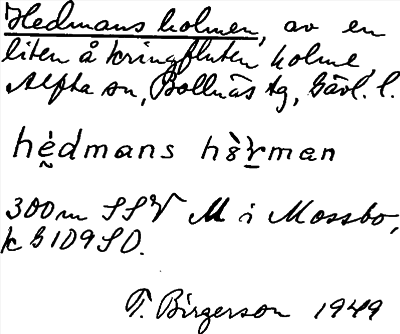 Hedmans holmen, av en
liten å kringfluten holme,
Alfta sn, Bollnäs tg, Gävl. l.
hèdmans hɷ̀ḻman
300 m SSV M i Mossbo,
k G 109 SO.
T. Birgerson 1949